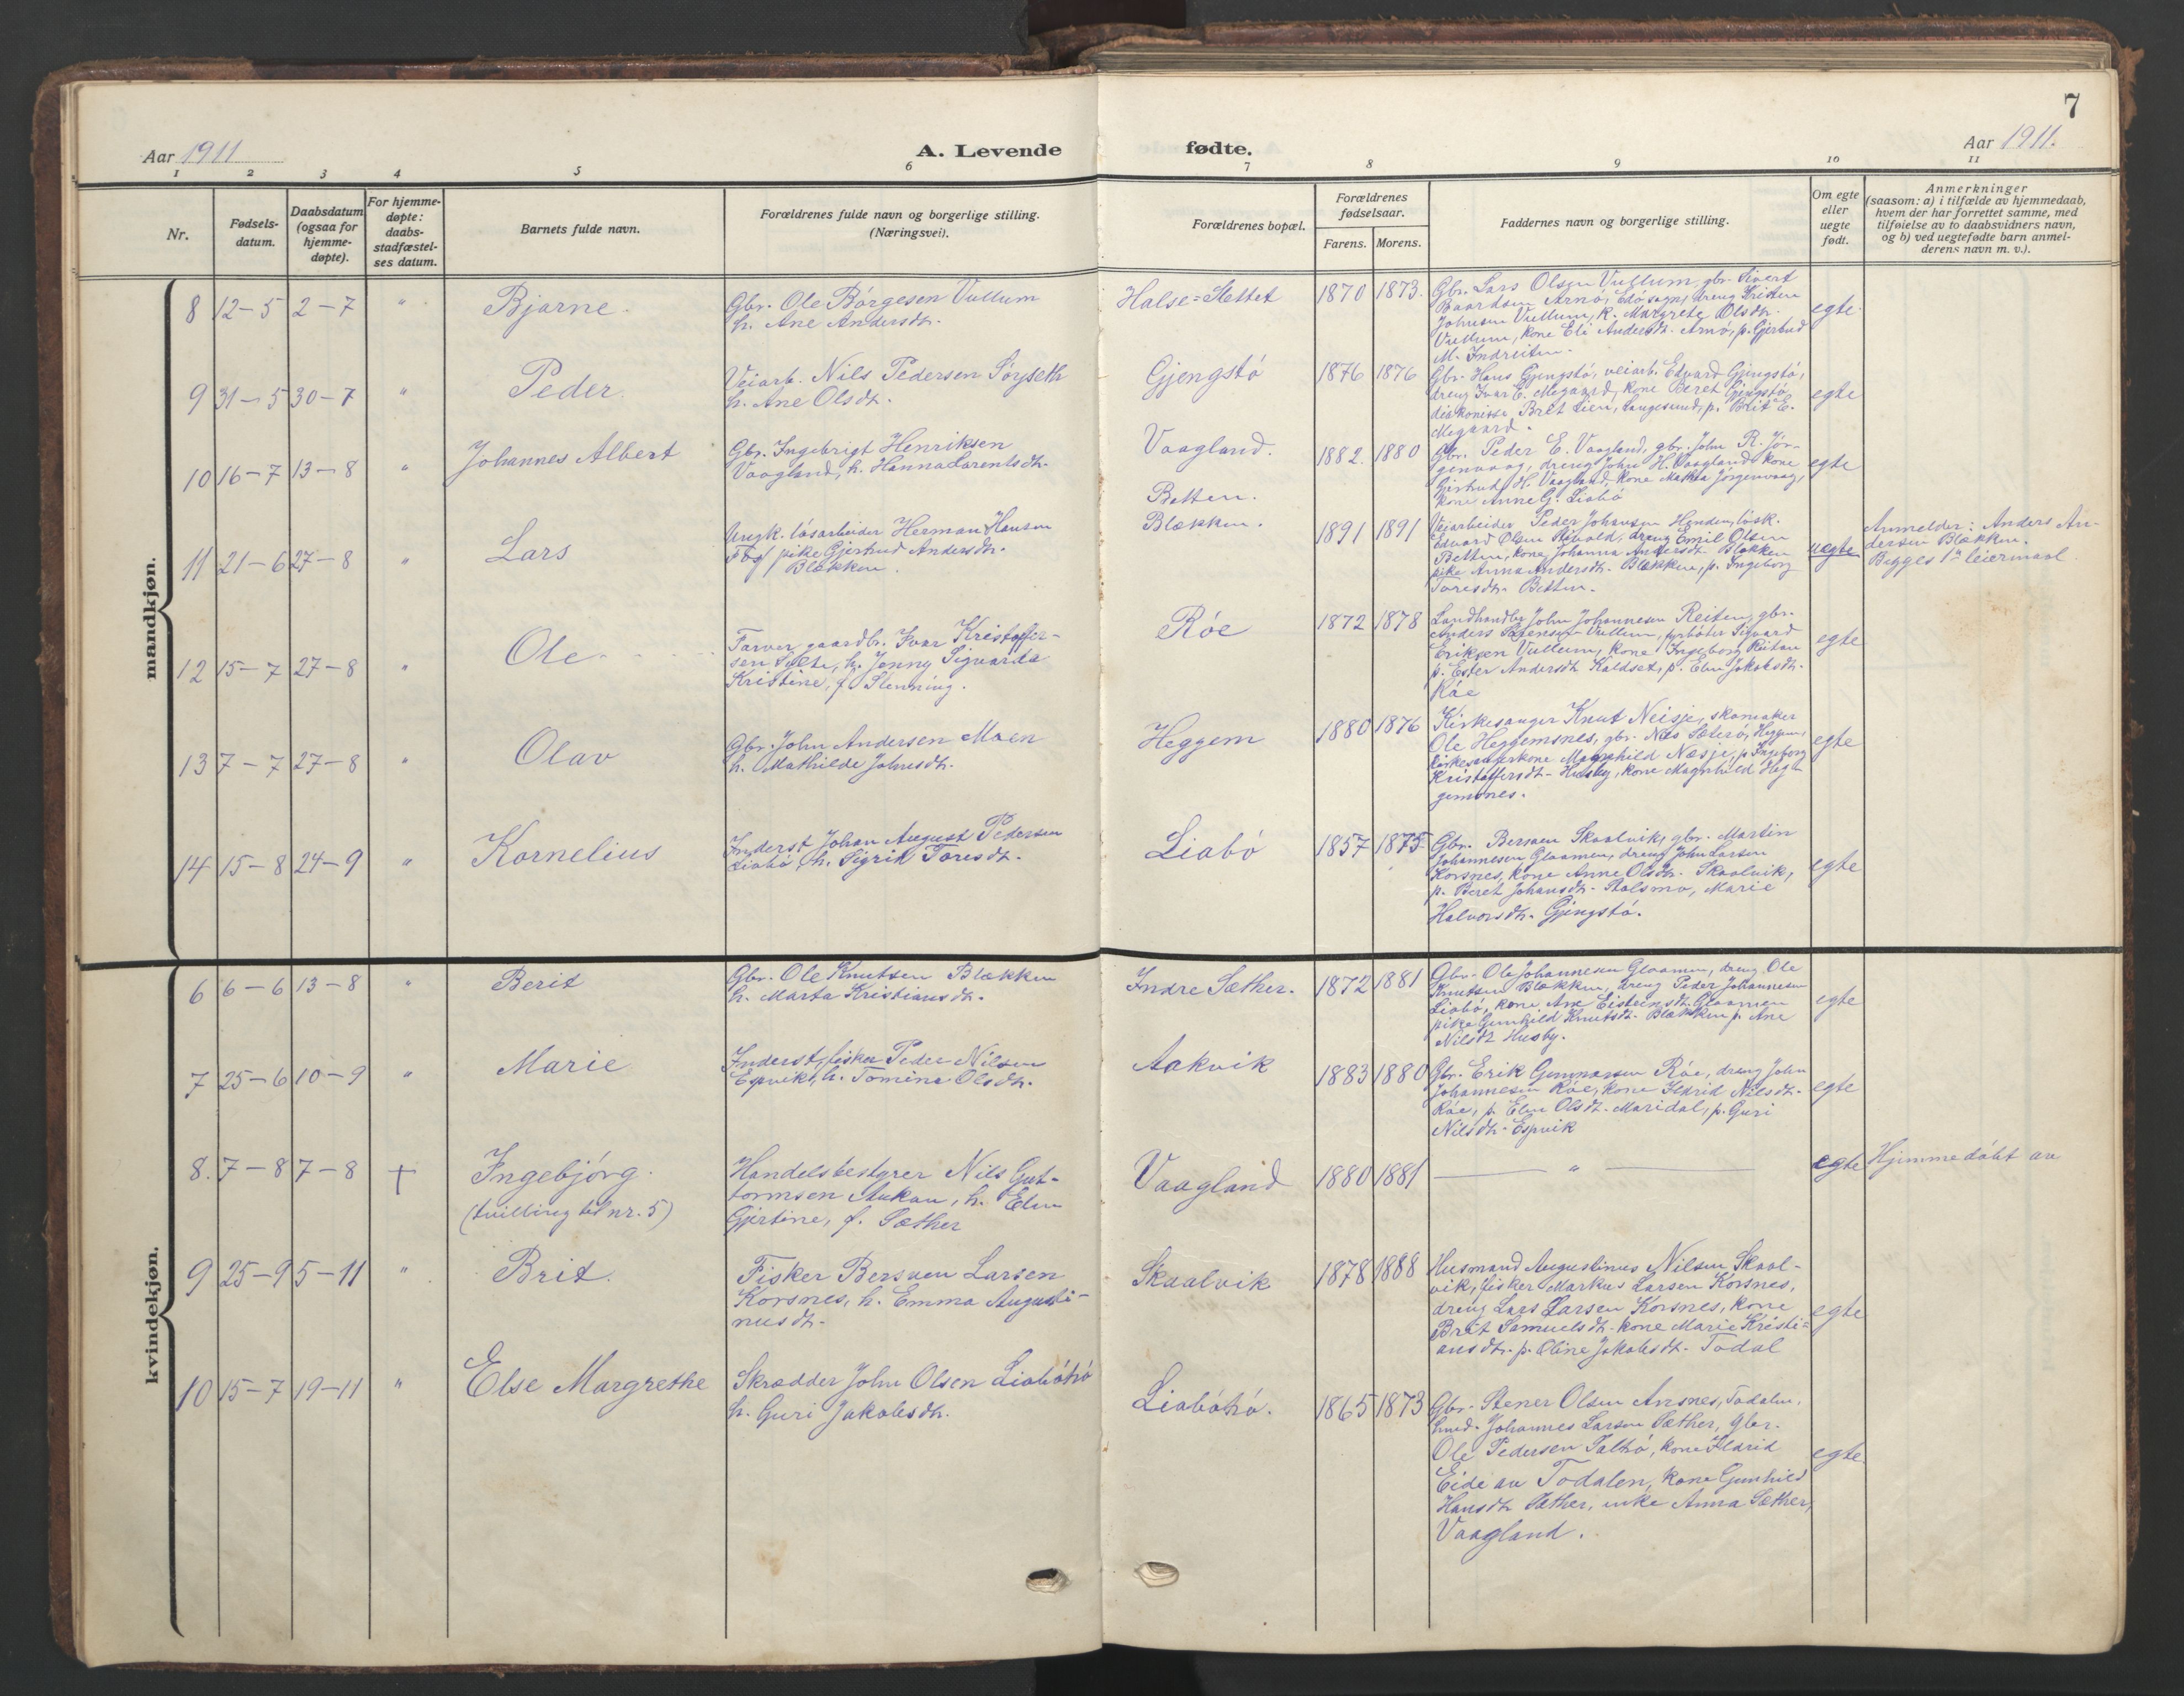 7
Aar 1911
A. Levende
fødte.
Aar 1911.
1 2 3 4 5 6 7 8 9 10 11
Nr.
Fødsels-
datum.
Daabsdatum
(ogsaa for
hjemme-
døpte).
For hjemme-
døpte:
daabs-
stadfæstel-
ses datum.
Barnets fulde navn.
Forældrenes fulde navn og borgerlige stilling.
(Næringsvei).
Forældrenes bopæl.
Forældrenes
fødselsaar.
Farens. Morens.
Faddernes navn og borgerlige stilling.
Om egte
eller
uegte
født.
Anmerkninger
(saasom: a) i tilfælde av hjemmedaab,
hvem der har forrettet samme, med
tilføielse av to daabsvidners navn,
og b) ved uegtefødte barn anmel-
derens navn m. v.).
mandkjøn.
8 12-5 2-7 " Bjarne.
Gbr. Ole Børgesen Vullum
h. Ane Andersdtr.
Halse=Slettet 1870 1873.
Gbr. Lars Olsen Vullum, gbr. Sivert
Baardsen Arnø, Edø sogn, dreng Kristen
Johnsen Vullum, k. Margrete Olsdtr.
Vullum, kone Eli Andersdtr. Arnø, p. Gjertrud
M. Indreiten.
egte
9 31-5 30-7 " Peder.
Veiarb. Nils Pedersen Søyseth
h. Ane Olsdtr.
Gjengstø 1876 1876
Gbr. Hans Gjengstø, veiarb. Edvard Gjengstø,
dreng Ivar E. Megaard, kone Beret Gjengstø,
diakonisse Bret Lien, Langesund, p. Brit E.
Megaard.
egte
10 16-7 13-8 " Johannes Albert
Gbr. Ingebrigt Henriksen
Vaagland, h. Hanna Larentsdtr.
Vaagland. 1882. 1880
Gbr. Peder E. Vaagland, gbr. John R. Jør-
genvaag, dreng John H. Vaagland, kone
Gjertrud H. Vaagland, kone Martha Jørgenvaag,
kone Anne G. Liabø
egte
11 21-6 27-8 " Lars
Ungk. løsarbeider Herman Hansen
Fos, pike Gjertrud Andersdtr.
Blekken.
Betten.
Blekken. 1891 1891
Veiarbeider Peder Johansen Henden, løsk.
Edvard Olsen Røvold, dreng Emil Olsen
Betten, kone Johanna Andersdtr. Blekken
pike Anna Andersdtr. Blekken, p. Ingeborg
Toresdtr. Betten.
uegte
Anmelder: Anders An-
dersen Blekken.
Begges 1ste leiermaal
12 15-7 27-8 " Ole
Farver gaardbr. Ivar Kristoffer-
sen Sylte, h. Jenny Sigvarda
Kristine, f. Slenning.
Røe 1872 1878
Landhandler John Johannesen Reiten, gbr.
Anders Vullum, fyrbøter Sigvard
Eriksen Vullum, kone Ingeborg Reiten
p. Ester Andersdtr. Kaldset, p. Elen Jakobsdtr.
Røe
egte
13 7-7 27-8 " Olav
Gbr. John Andersen Moen
h. Mathilde Johnsdtr.
Heggem 1880 1876
Kirkesanger Knut Neisje, skomaker
Ole Heggemsnes, gbr. Nils Heggem,
kirkesangerkone Magnhild Næsje, p. Ingeborg
Kristoffersdtr. Husby, kone Magnhild Heg-
gemsnes.
egte
14 15-8 24-9 " Kornelius
Inderst Johan August Pedersen
Liabø, h. Sigrid Toresdtr.
Liabø 1857 1875
Gbr. Bersven Skaalvik, gbr. Martin
Johannesen Glaamen, dreng John Larsen
Korsnes, kone Anne Olsdtr. Skaalvik,
p. Beret Johansdtr. Stolsmo, Marie
Halvorsdtr. Gjengstø.
egte
kvindekjøn.
6 6-6 13-8 " Berit
Gbr. Ole Knutsen Blekken
h. Marta Kristiansdtr.
Indre Sæther. 1872 1881
Gbr. Ole Johannesen Glaamen, dreng Ole
Knutsen Blekken, dreng Peder Johannesen
Liabø, kone Ane Eisteinsdtr. Glaamen
pike Gunhild Knutsdtr. Blekken p. Ane
Nilsdtr Husby.
egte
7 25-6 10-9 " Marie
Inderst, fisker Peder Nilsen
Espvik, h. Tomina Olsdtr.
Aakvik 1883 1880
Gbr. Erik Gunnarsen Røe, dreng John
Johannesen Røe, kone Ildrid Nilsdtr.
Røe, p. Elen Olsdtr. Maridal, p. Guri
Nilsdtr. Espvik
egte
8. 7-8 7-8 + Ingebjørg.
(tvilling til nr. 5)
Handelsbestyrer Nils Gut-
tormsen Aukan, h. Elen
Gjertine, f. Sæther
Vaagland 1880 1881
— " —
egte
Hjemmedøbt av
9 25-9 5-11 " Brit.
Fisker Bersven Larsen
Korsnes, h. Emma Augusti-
nusdtr.
Skaalvik 1878 1888
Husmand Augustinus Nilsen Skaal-
vik, fisker Markus Larsen Korsnes,
dreng Lars Larsen Korsnes, kone
Brit Samuelsdtr. kone Marie Kristi=
ansdtr. p. Oline Jakobsdtr. Todal
egte
10 15-7 19-11 " Else Margrethe
Skrædder John Olsen Liabøhø
h. Guri Jakobsdtr.
Liabøhø. 1865 1873
Gbr. Stener Olsen Ansnes, Todalen,
hmd. Johannes Larsen Sæther, gbr.
Ole Pedersen Talhø, kone Ildrid
Eide av Todalen, kone Gunhild
Hansdtr Sæther, enke Anna Sæther,
Vaagland.
egte